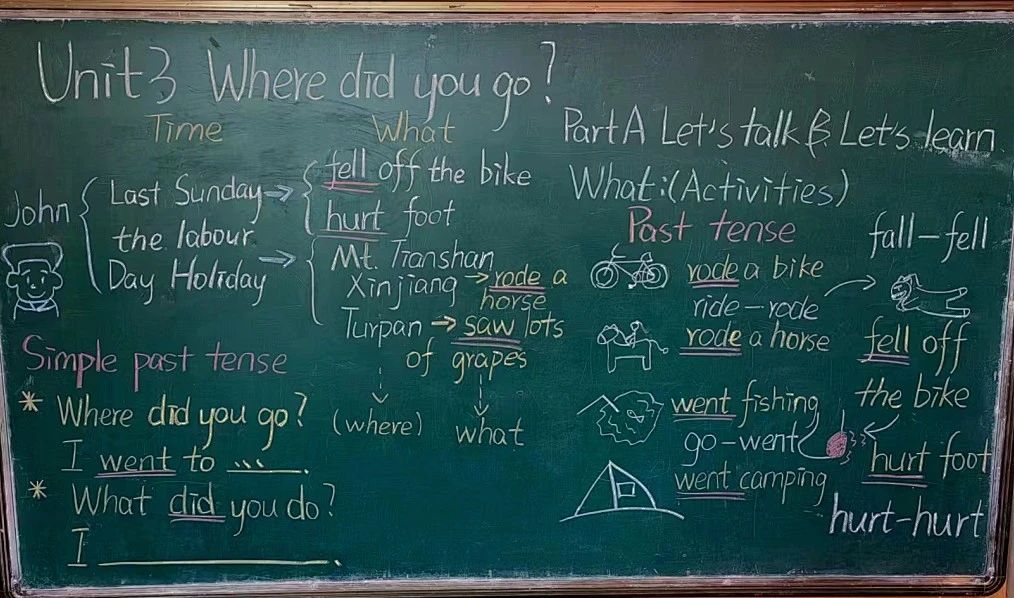 Unit 3 Where did you go?
Time What
John
Last Sunday →
the labour
Day Holiday →
fell off the bike
hurt foot
Mt. Tianshan
Xinjiang → rode a
horse
Turpan → saw lots
of grapes
(where) what
Simple past tense
* Where did you go?
I went to ......
* What did you do?
I ____________.
Part A Let's talk & Let's learn
What: (Activities)
Past tense
rode a bike
ride-rode
rode a horse
went fishing
go-went
went camping
fall-fell
fell off
the bike
hurt foot
hurt-hurt